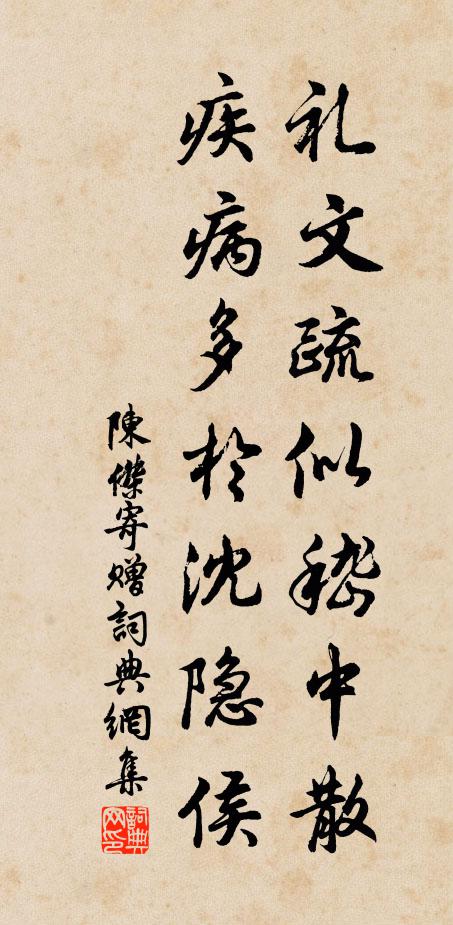 礼文疏似嵇中散
疾病多於沈隐侯
陳傑寄贈詞典網集
詞典网印